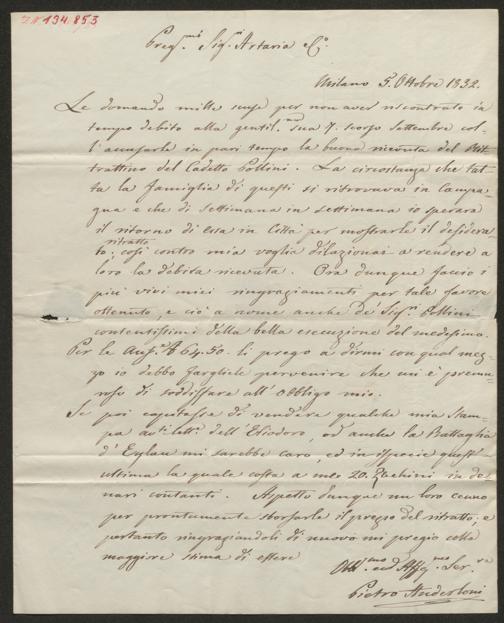 I.N. 134.853
Preg.mi Sig.ri Artaria e C.o
Milano 5. Ottobre 1832.
Le domando mille scuse per non aver riscontrato in
tempo debito alla gentil.ma sua 7. scorso Settembre col-
l'accusarle in pari tempo la buona ricevuta del Rit-
trattino del Cadetto Pollini. La circostanza che tut-
ta la famiglia di questi si ritrovava in Campa-
gna e che di settimana in settimana io sperava
il ritorno di essa in Città per mostrarle il desidera-
to ritratto; così contro mia voglia dilazionai a rendere a
loro la debita ricevuta. Ora dunque faccio i
più vivi miei ringraziamenti per tale favore
ottenuto, e ciò a nome anche de' Sig.ri Pollini
contentissimi della bella esecuzione del medesimo.
Per le Aus.e £ 64.50. li prego a dirmi con qual mez-
zo io debbo fargliele pervenire che mi è premu-
roso di soddisfare all'obbligo mio.
Se poi capitasse di vendere qualche mia stam-
pa av.ti lett.e dell'Eliodoro, od anche la Battaglia
d'Eylau mi sarebbe caro, ed in ispecie quest'
ultima la quale costa a me 20. Zechini in de-
nari contanti. Aspetto dunque un loro cenno
per prontamente sborsarle il prezzo del ritratto; e
pertanto ringraziandoli di nuovo mi pregio colla
maggiore stima di essere
Obb.mo ed Aff.mo Ser.re
Pietro Anderloni